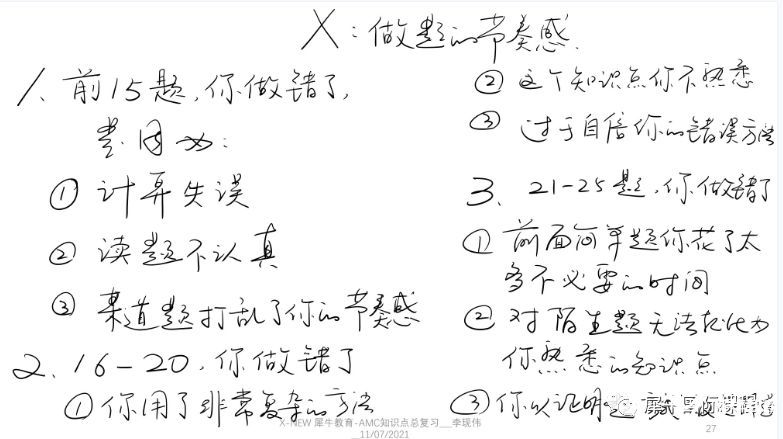 X：做题的节奏感
1、前15题，你做错了，
是因为：
① 计算失误
② 读题不认真
③ 某道题打乱了你的节奏感
2、16-20，你做错了
① 你用了非常复杂的方法
② 这个知识点你不熟悉
③ 过于自信你的错误方法
3、21-25题，你做错了
① 前面简单题你花了太
多不必要的时间
② 对陌生题无法转化为
你熟悉的知识点
③ 你以证明
犀牛国际课程
X-NEW 犀牛教育-AMC知识点总复习__李现伟
__11/07/2021
27